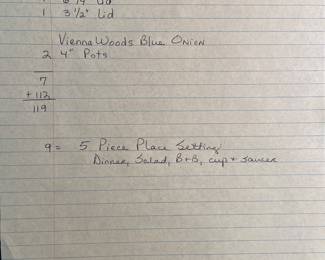 1 3 1/2" Lid
Vienna Woods Blue Onion
2 4" Pots
7
+ 112
119
9 = 5 Piece Place Setting
Dinner, Salad, B+B, cup + saucer